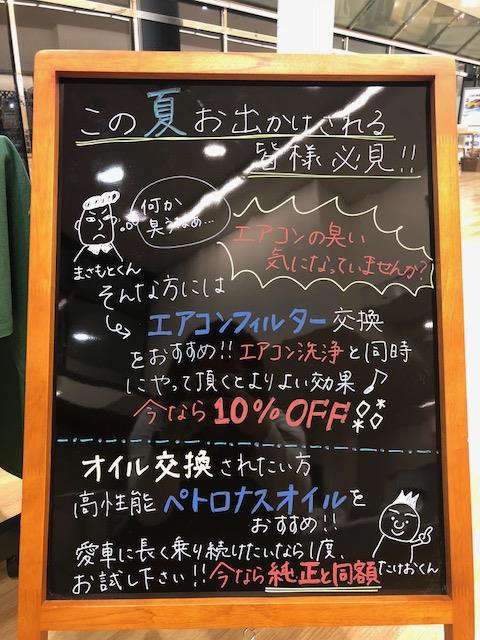 この夏お出かけされる
皆様必見!!
何か
臭うなぁ…
まさもとくん
エアコンの臭い
気になっていませんか?
そんな方には
エアコンフィルター交換
をおすすめ!!エアコン洗浄と同時
にやって頂くとよりよい効果♪
今なら10%OFF
オイル交換されたい方
高性能ペトロナスオイルを
おすすめ!!
愛車に長く乗り続けたいなら1度、
お試し下さい!!今なら純正と同額
たけおくん